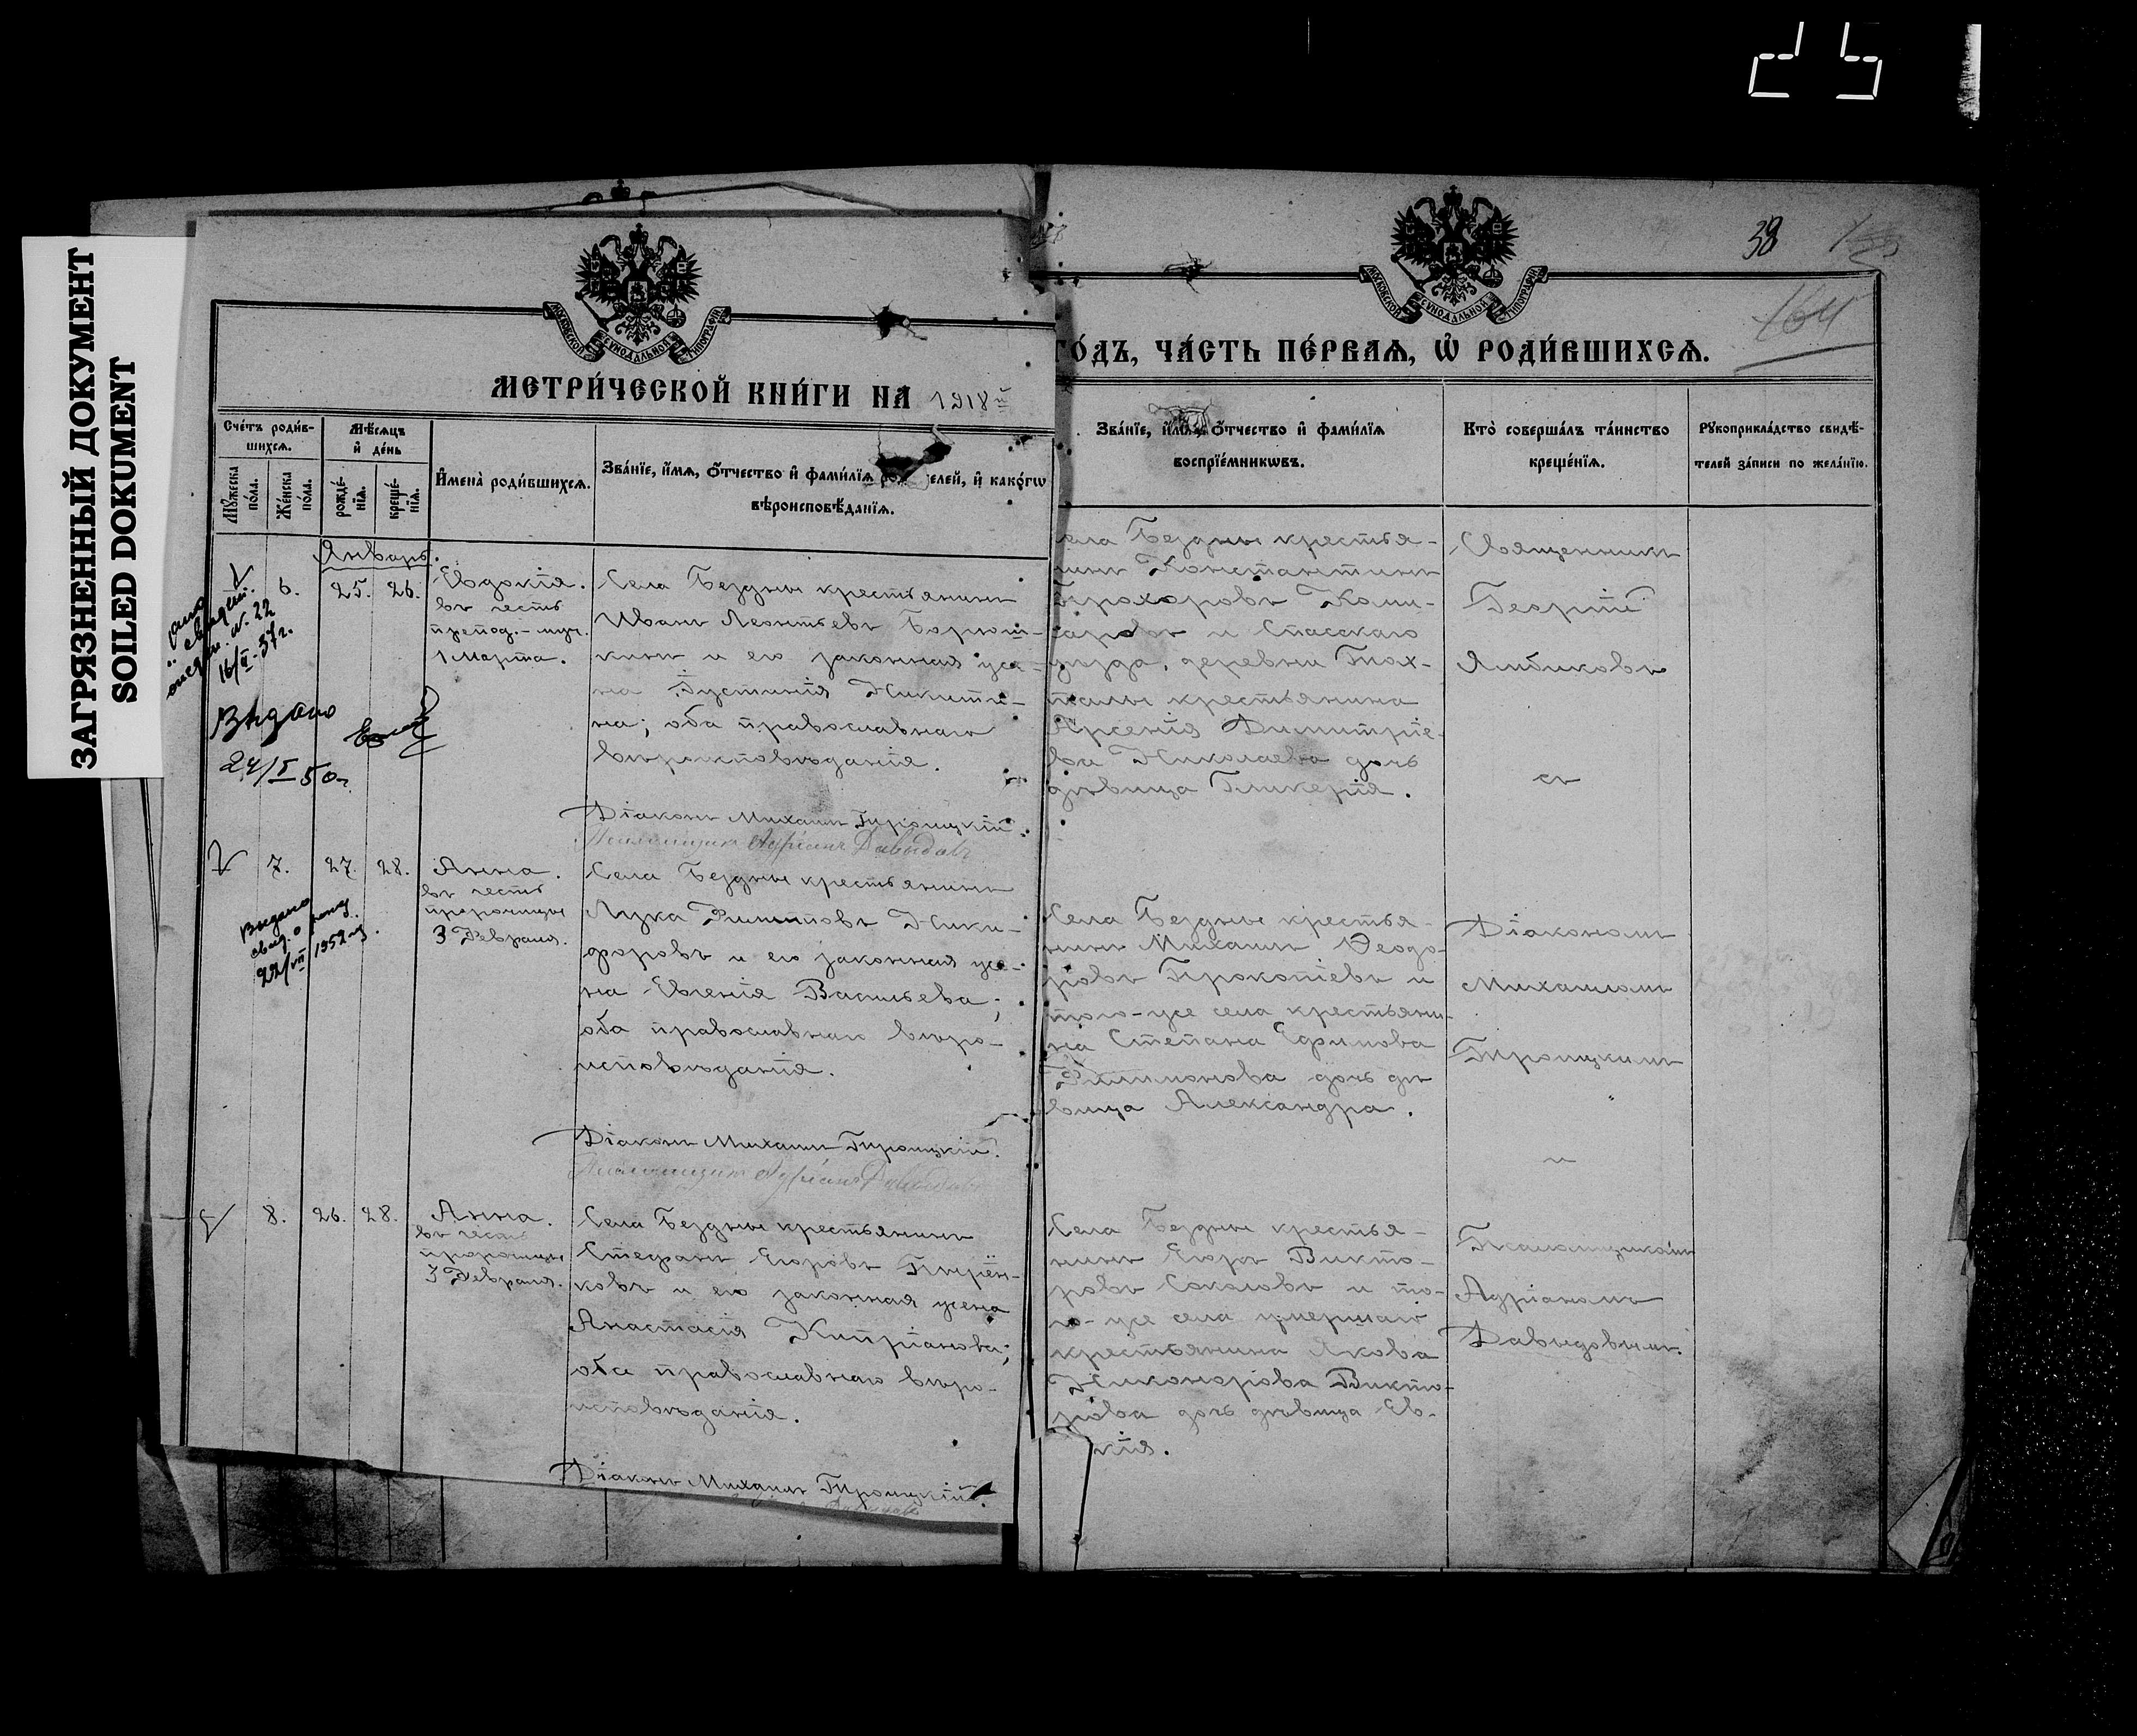 25
ЗАГРЯЗНЕННЫЙ ДОКУМЕНТ
SOILED DOKUMENT
38
164
МОСКОВСКОЙ СѴНОДАЛЬНОЙ ТИПОГРАФІИ
МОСКОВСКОЙ СѴНОДАЛЬНОЙ ТИПОГРАФІИ
МЕТРИ́ЧЕСКОЙ КНИ́ГИ НА 1918й
ГО́ДЪ, ЧА́СТЬ ПЕ́РВАѦ, Ѽ РОДИ́ВШИХСѦ.
Сче́тъ роди́в-
шихсѧ.
Мꙋ́жеска по́ла.
Же́нска по́ла.
Мѣ́сѧцъ
и҆ де́нь
рожде́-
нїѧ.
креще́-
нїѧ.
И҆мена̀ роди́вшихсѧ.
Зва́нїе, и҆́мѧ, ѻ҆́тчество и҆ фами́лїѧ ро елей, и҆ како́гѡ
вѣроисповѣ́данїѧ.
Зва́нїе, и҆́мѧ, ѻ҆́тчество и҆ фами́лїѧ
воспрїе́мникѡвъ.
Кто̀ соверша́лъ та́инство
креще́нїѧ.
Рꙋкоприкла́дство свидѣ́-
телей за́писи по жела́нїю.
Январь.
6. 25. 26. Евдокія.
въ честь
препод.-муч.
1 Марта.
Села Бездны крестьянинъ
Иванъ Леонтьевъ Борют-
кинъ и его законная же-
на Іустинія Никити-
на; оба православнаго
вѣроисповѣданія.
Діаконъ Михаилъ Троицкій.
Псаломщикъ Адріанъ Давыдовъ
№ 22
16/II-37г.
Выдано
24/I 50г.
ела Бездны крестья-
нинъ Константинъ
Прохоровъ Коми-
саровъ и Спасскаго
уѣзда, деревни
крестьянина
Арсенія Димитріе-
ва Николаева дочь
дѣвица Гликерія.
Священникъ
Георгій
Ямбиковъ
съ
7. 27. 28. Анна.
въ честь
пророчицы
3 Февраля.
Выдано
свид. о рожд.
22/VII 1952 г.
Села Бездны крестьянинъ
Лука Филиповъ Ники-
форовъ и его законная же-
на Евгенія Васильева;
оба православнаго вѣро-
исповѣданія.
Діаконъ Михаилъ Троицкій.
Псаломщикъ Адріанъ Давыдовъ
Села Бездны крестья-
нинъ Михаилъ Ѳеодо-
ровъ Прокопіевъ и
того-же села крестьяни-
на Степана Ефимова
Филимонова дочь дѣ
вица Александра.
Діакономъ
Михаиломъ
Троицкимъ
и
8. 26. 28. Анна.
въ честь
пророчицы
3 Февраля.
Села Бездны крестьянинъ
Стефанъ Егоровъ
ковъ и его законная жена
Анастасія Кипріанова;
оба православнаго вѣро-
исповѣданія.
Діаконъ Михаилъ Троицкій.
Села Бездны крестья-
нинъ Егоръ Викто-
ровъ Соколовъ и то-
го-же села умершаго
крестьянина Якова
Никонорова Викто-
рова дочь дѣвица Ев-
кія.
Псаломщикомъ
Адріаномъ
Давыдовымъ.